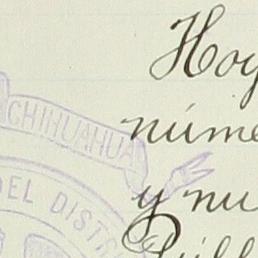 Hoy
núme
y nu
CHIHUAHUA
DEL DIST